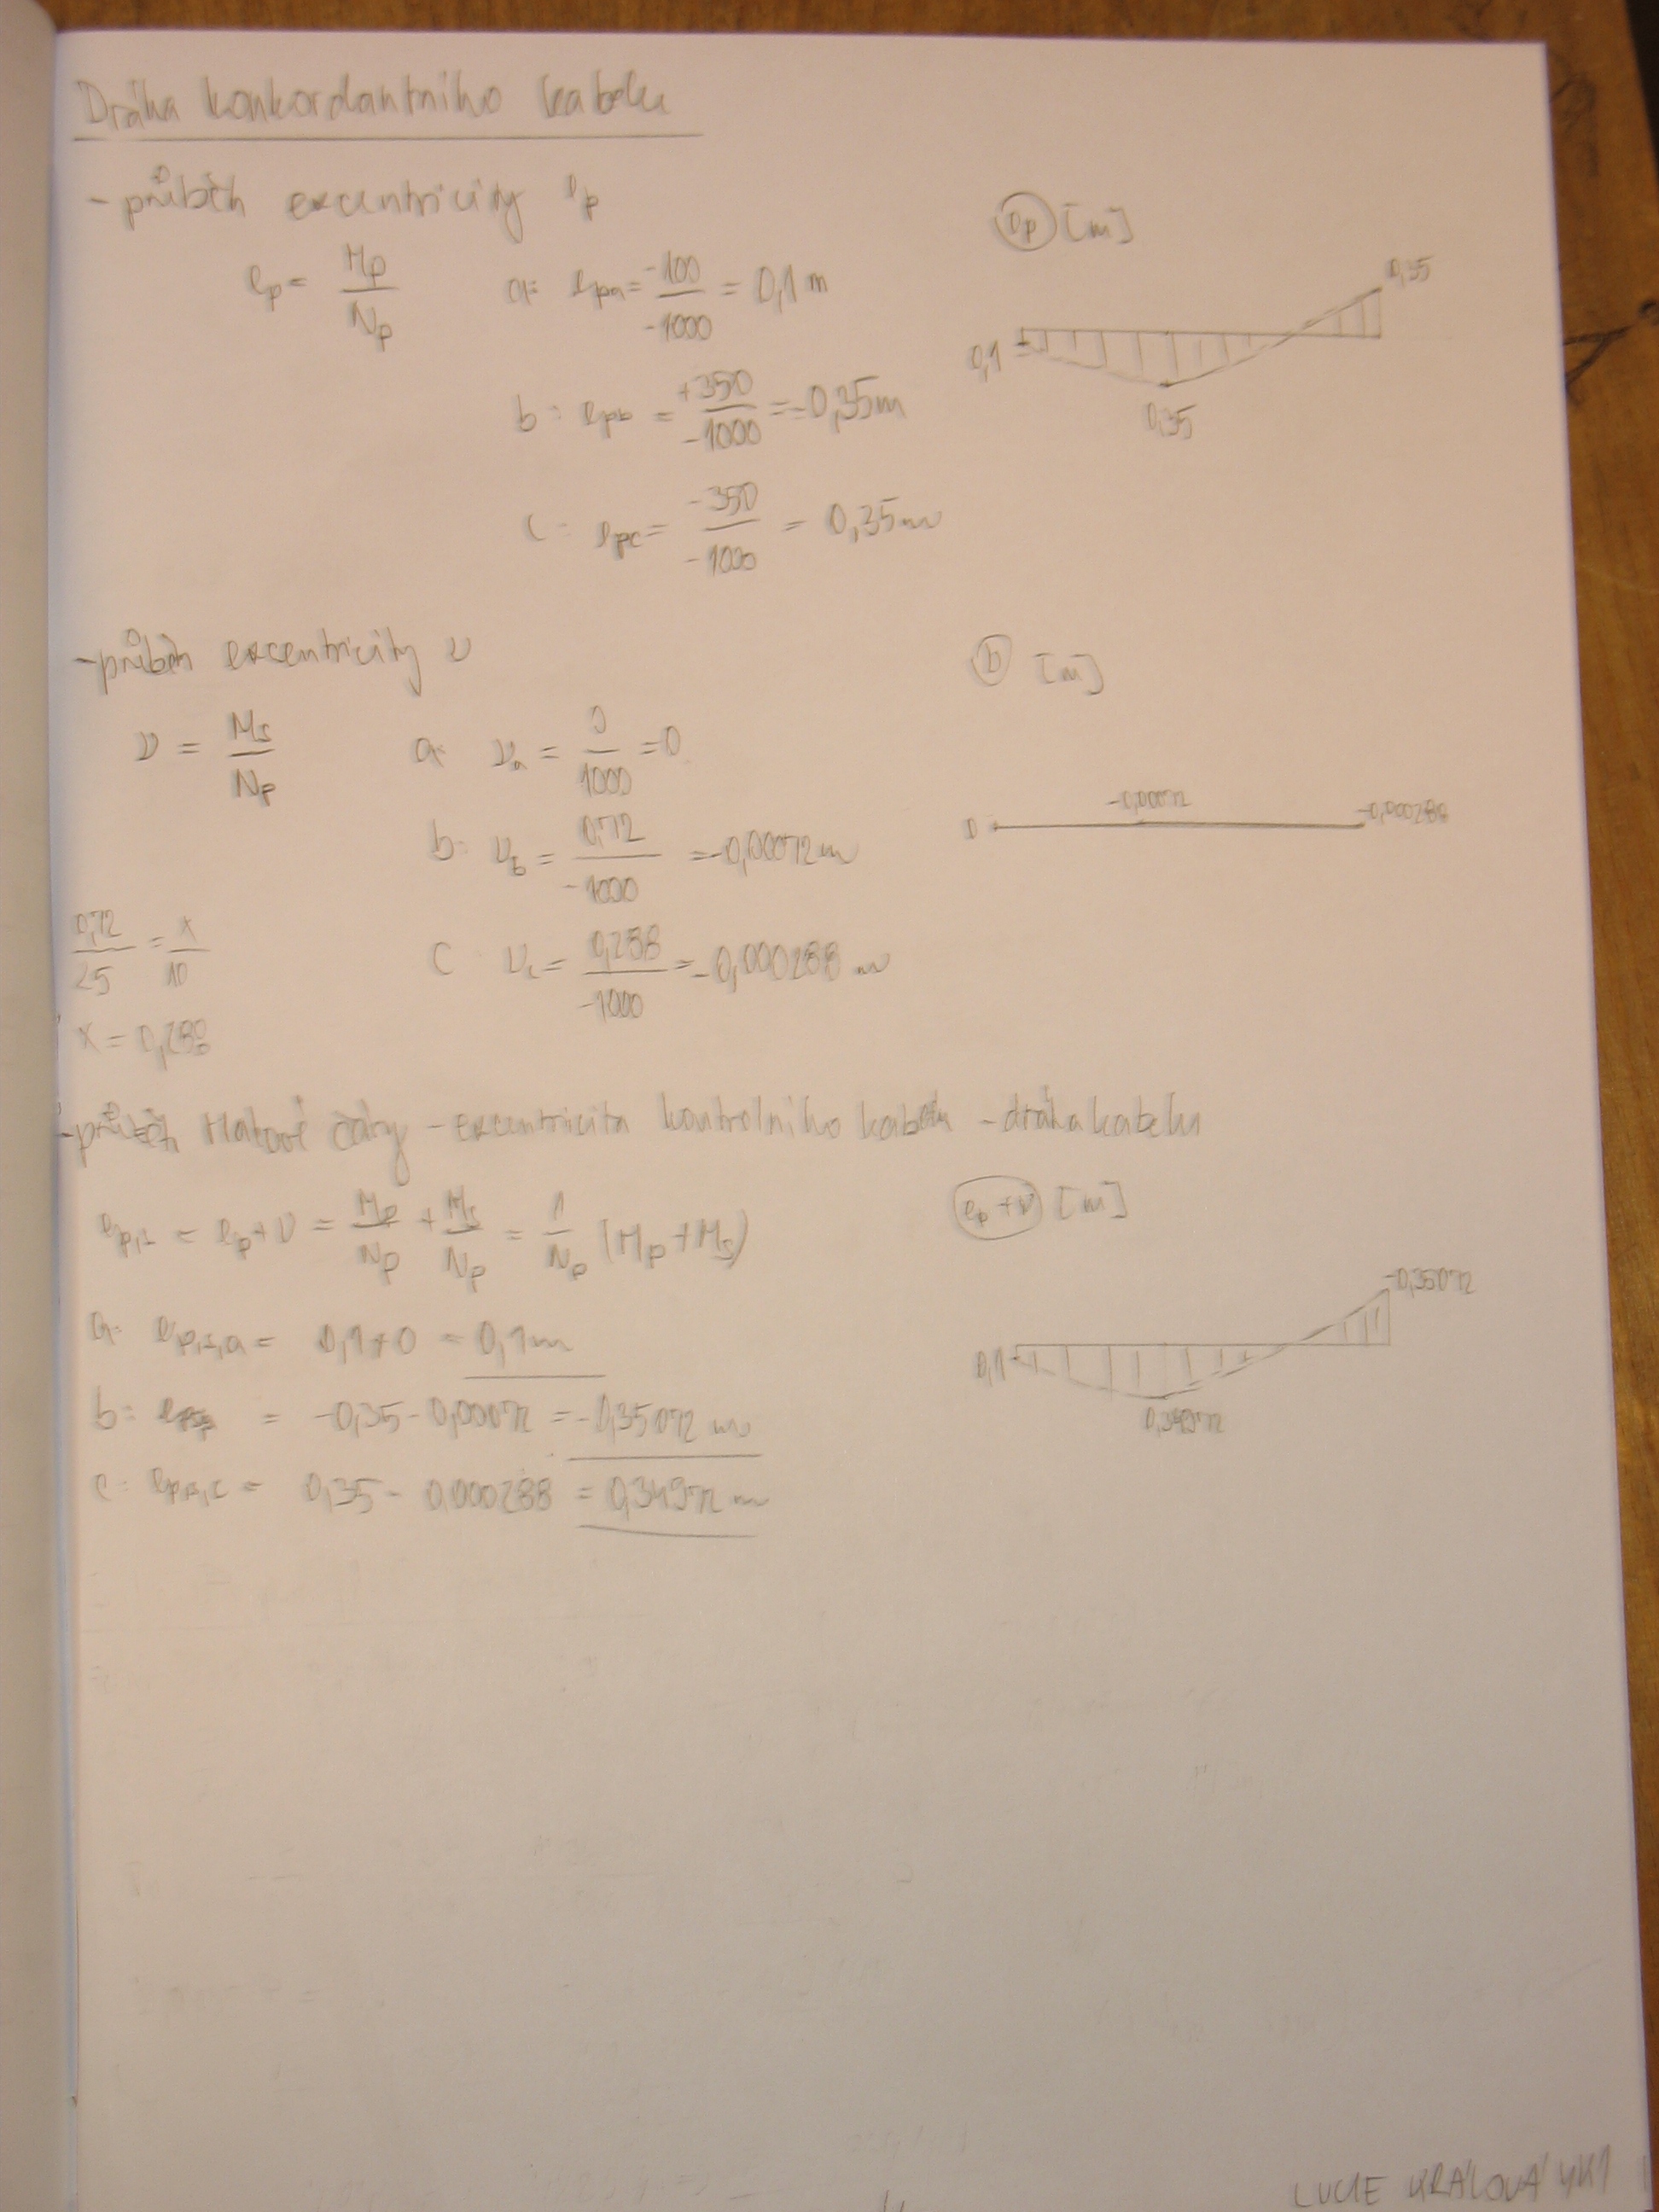 Dráha konkordantního kabelu
- průběh excentricity e_p
e_p = M_p / N_p
a: e_pa = -100 / -1000 = 0,1 m
b: e_pb = +350 / -1000 = -0,35 m
c: e_pc = -350 / -1000 = 0,35 m
e_p [m]
0,35
0,1
0,35
- průběh excentricity ν
ν = M_s / N_p
a: ν_a = 0 / 1000 = 0
b: ν_b = 0,72 / -1000 = -0,00072 m
c: ν_c = 0,288 / -1000 = -0,000288 m
0,72 / 25 = x / 10
x = 0,288
ν [m]
0
-0,00072
-0,000288
- průběh tlakové čáry - excentricita kontrolního kabelu - dráha kabelu
e_p,s = e_p + ν = M_p / N_p + M_s / N_p = 1 / N_p (M_p + M_s)
a: e_p,s,a = 0,1 + 0 = 0,1 m
b: = -0,35 - 0,00072 = -0,35072 m
c: e_p,s,c = 0,35 - 0,000288 = 0,34972 m
e_p + ν [m]
-0,35072
0,1
0,34972
LUCIE KRÁLOVÁ 4K1